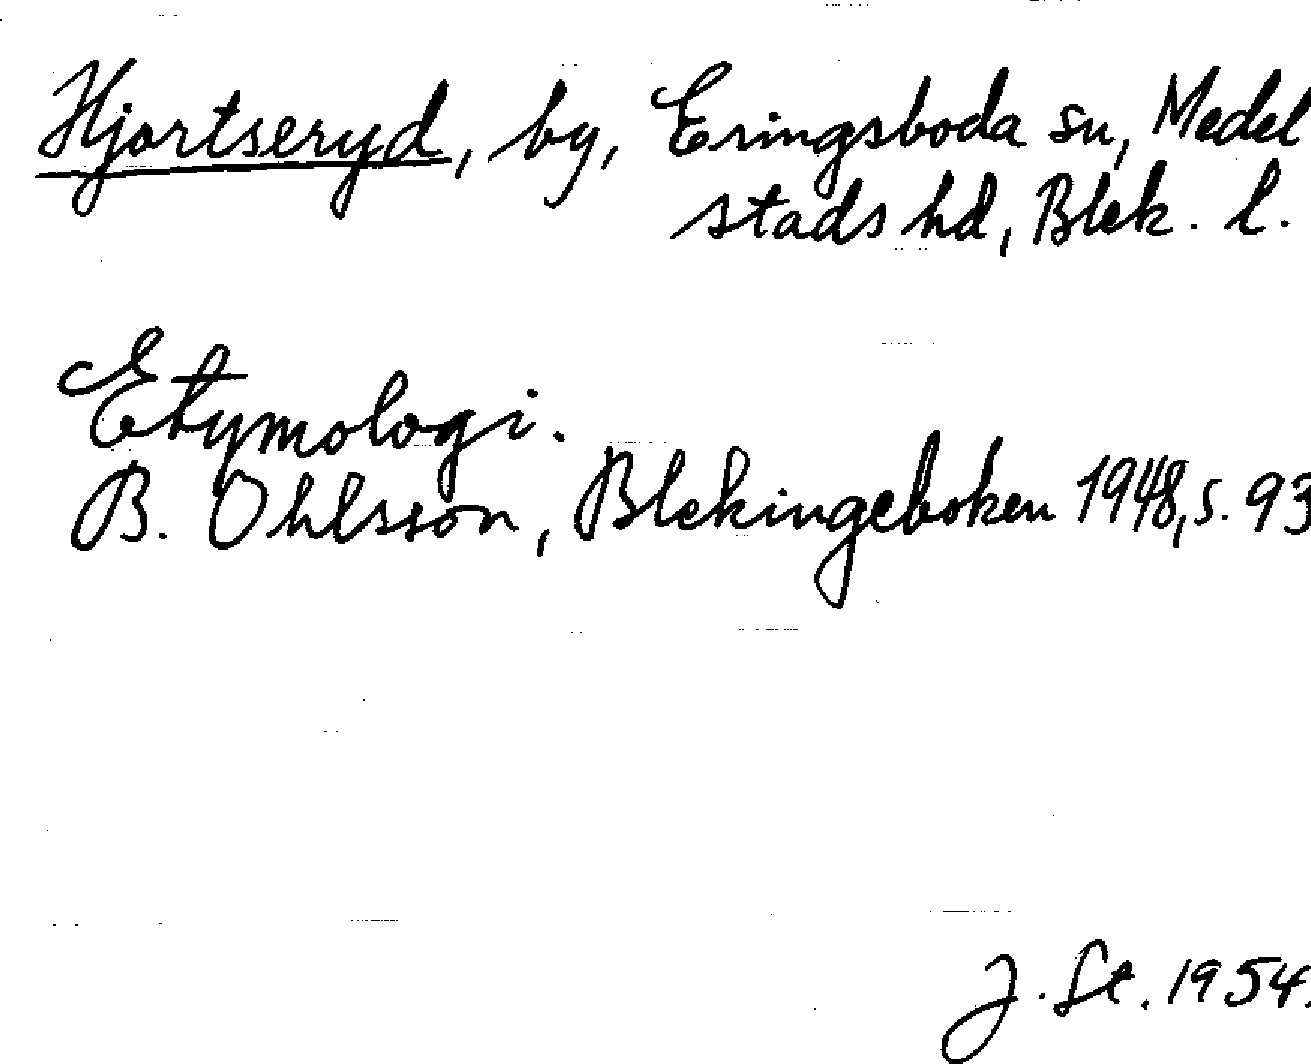 Hjortseryd, by, Eringsboda sn, Medel
stads hd, Blek. l.
Etymologi.
B. Ohlsson, Blekingeboken 1948, s. 93
J. St. 1954.